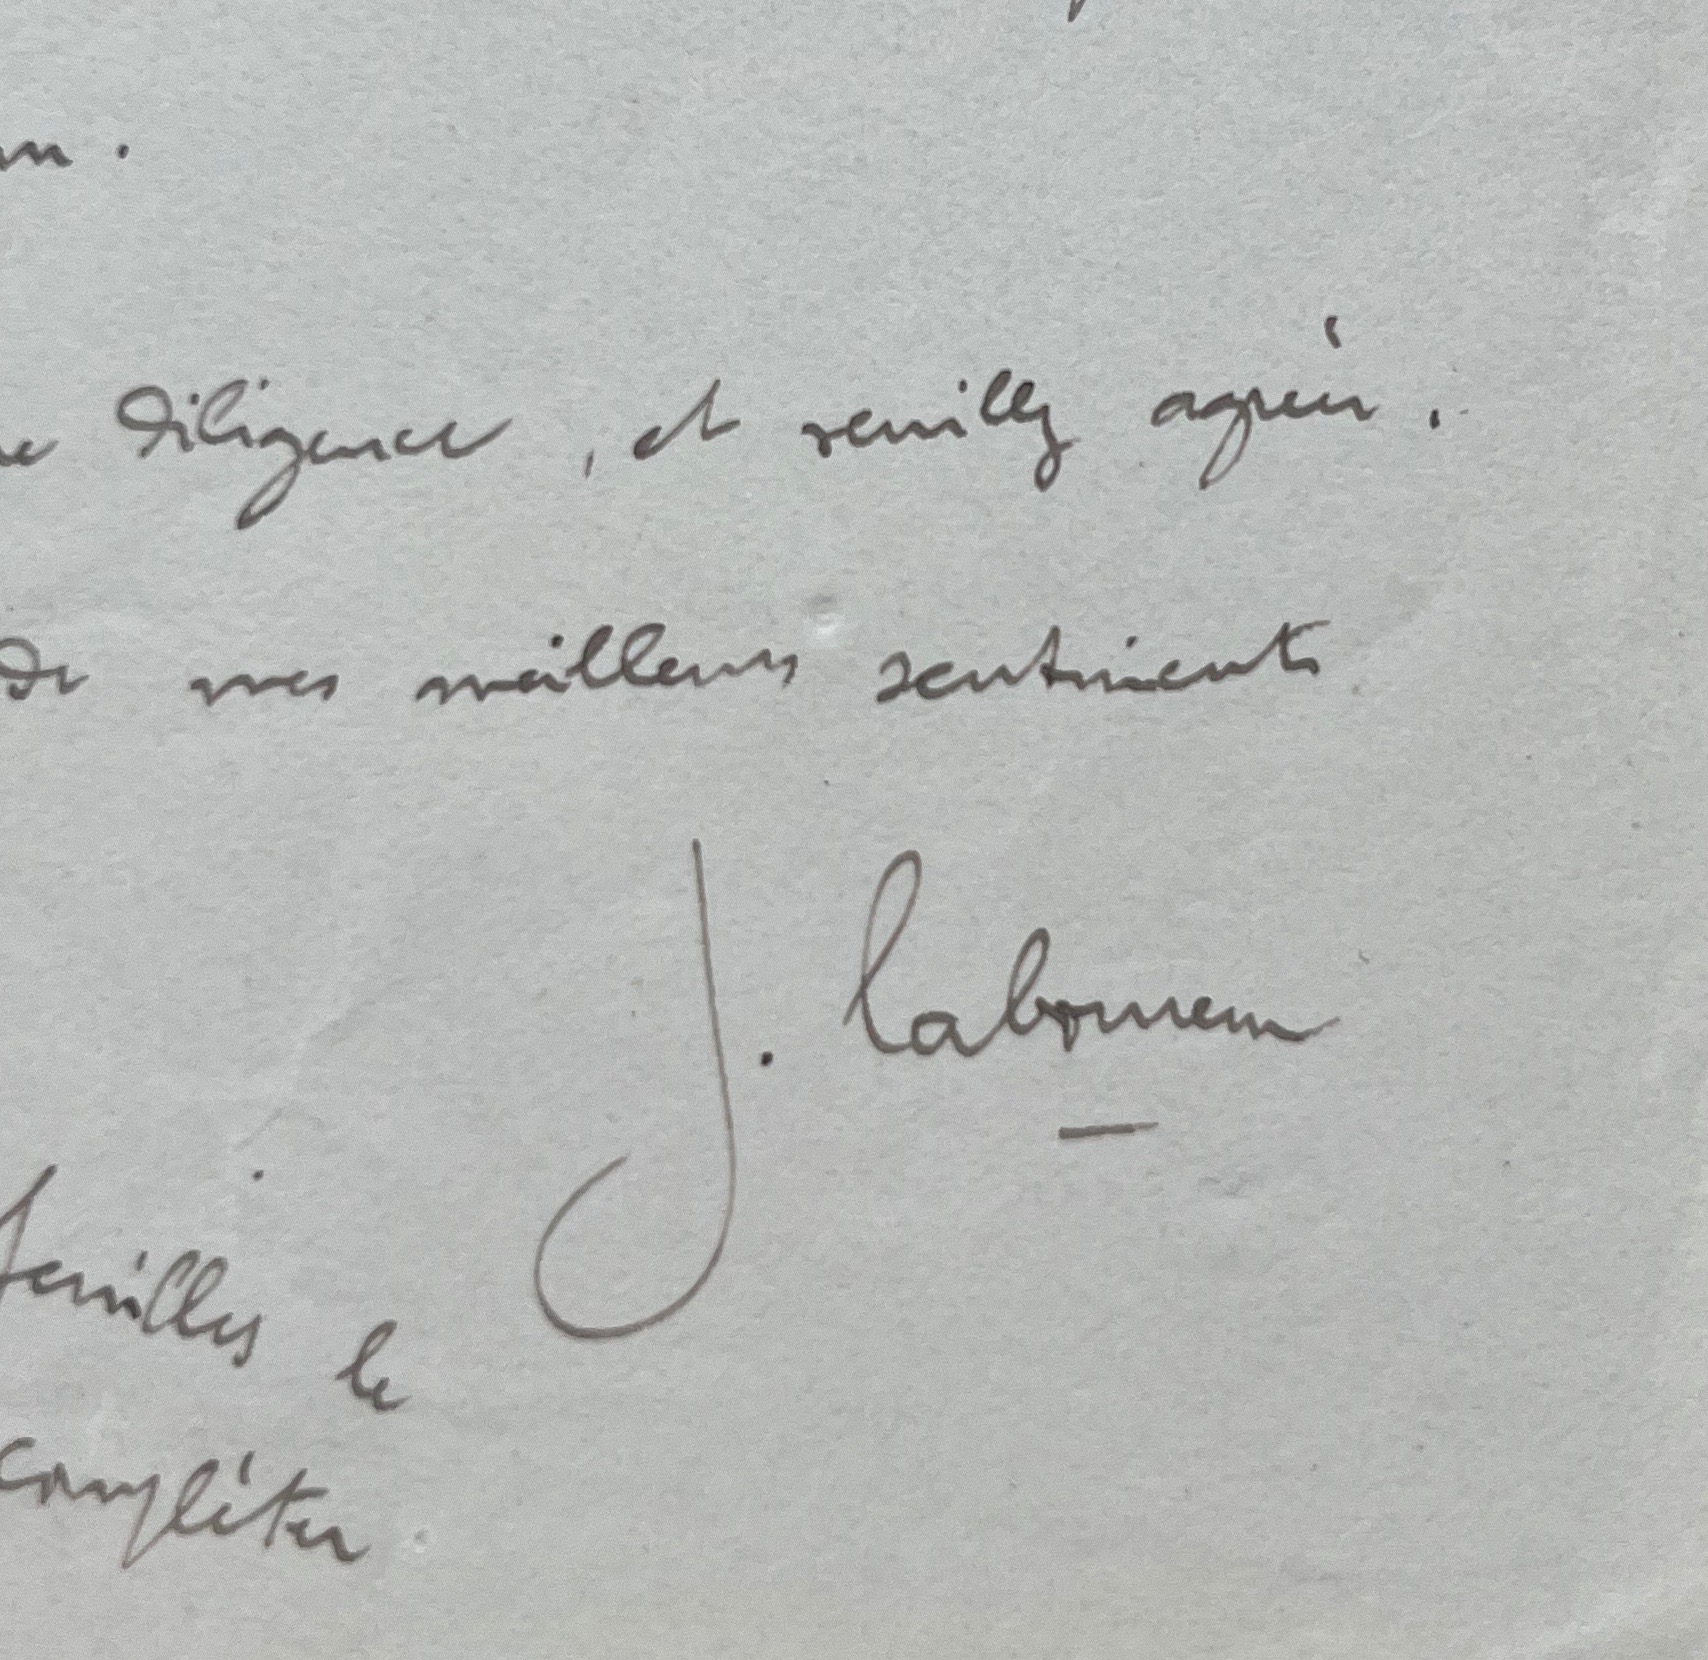 diligence, et veuillez agréer,
de mes meilleurs sentiments
J.
veuillez le
compléter